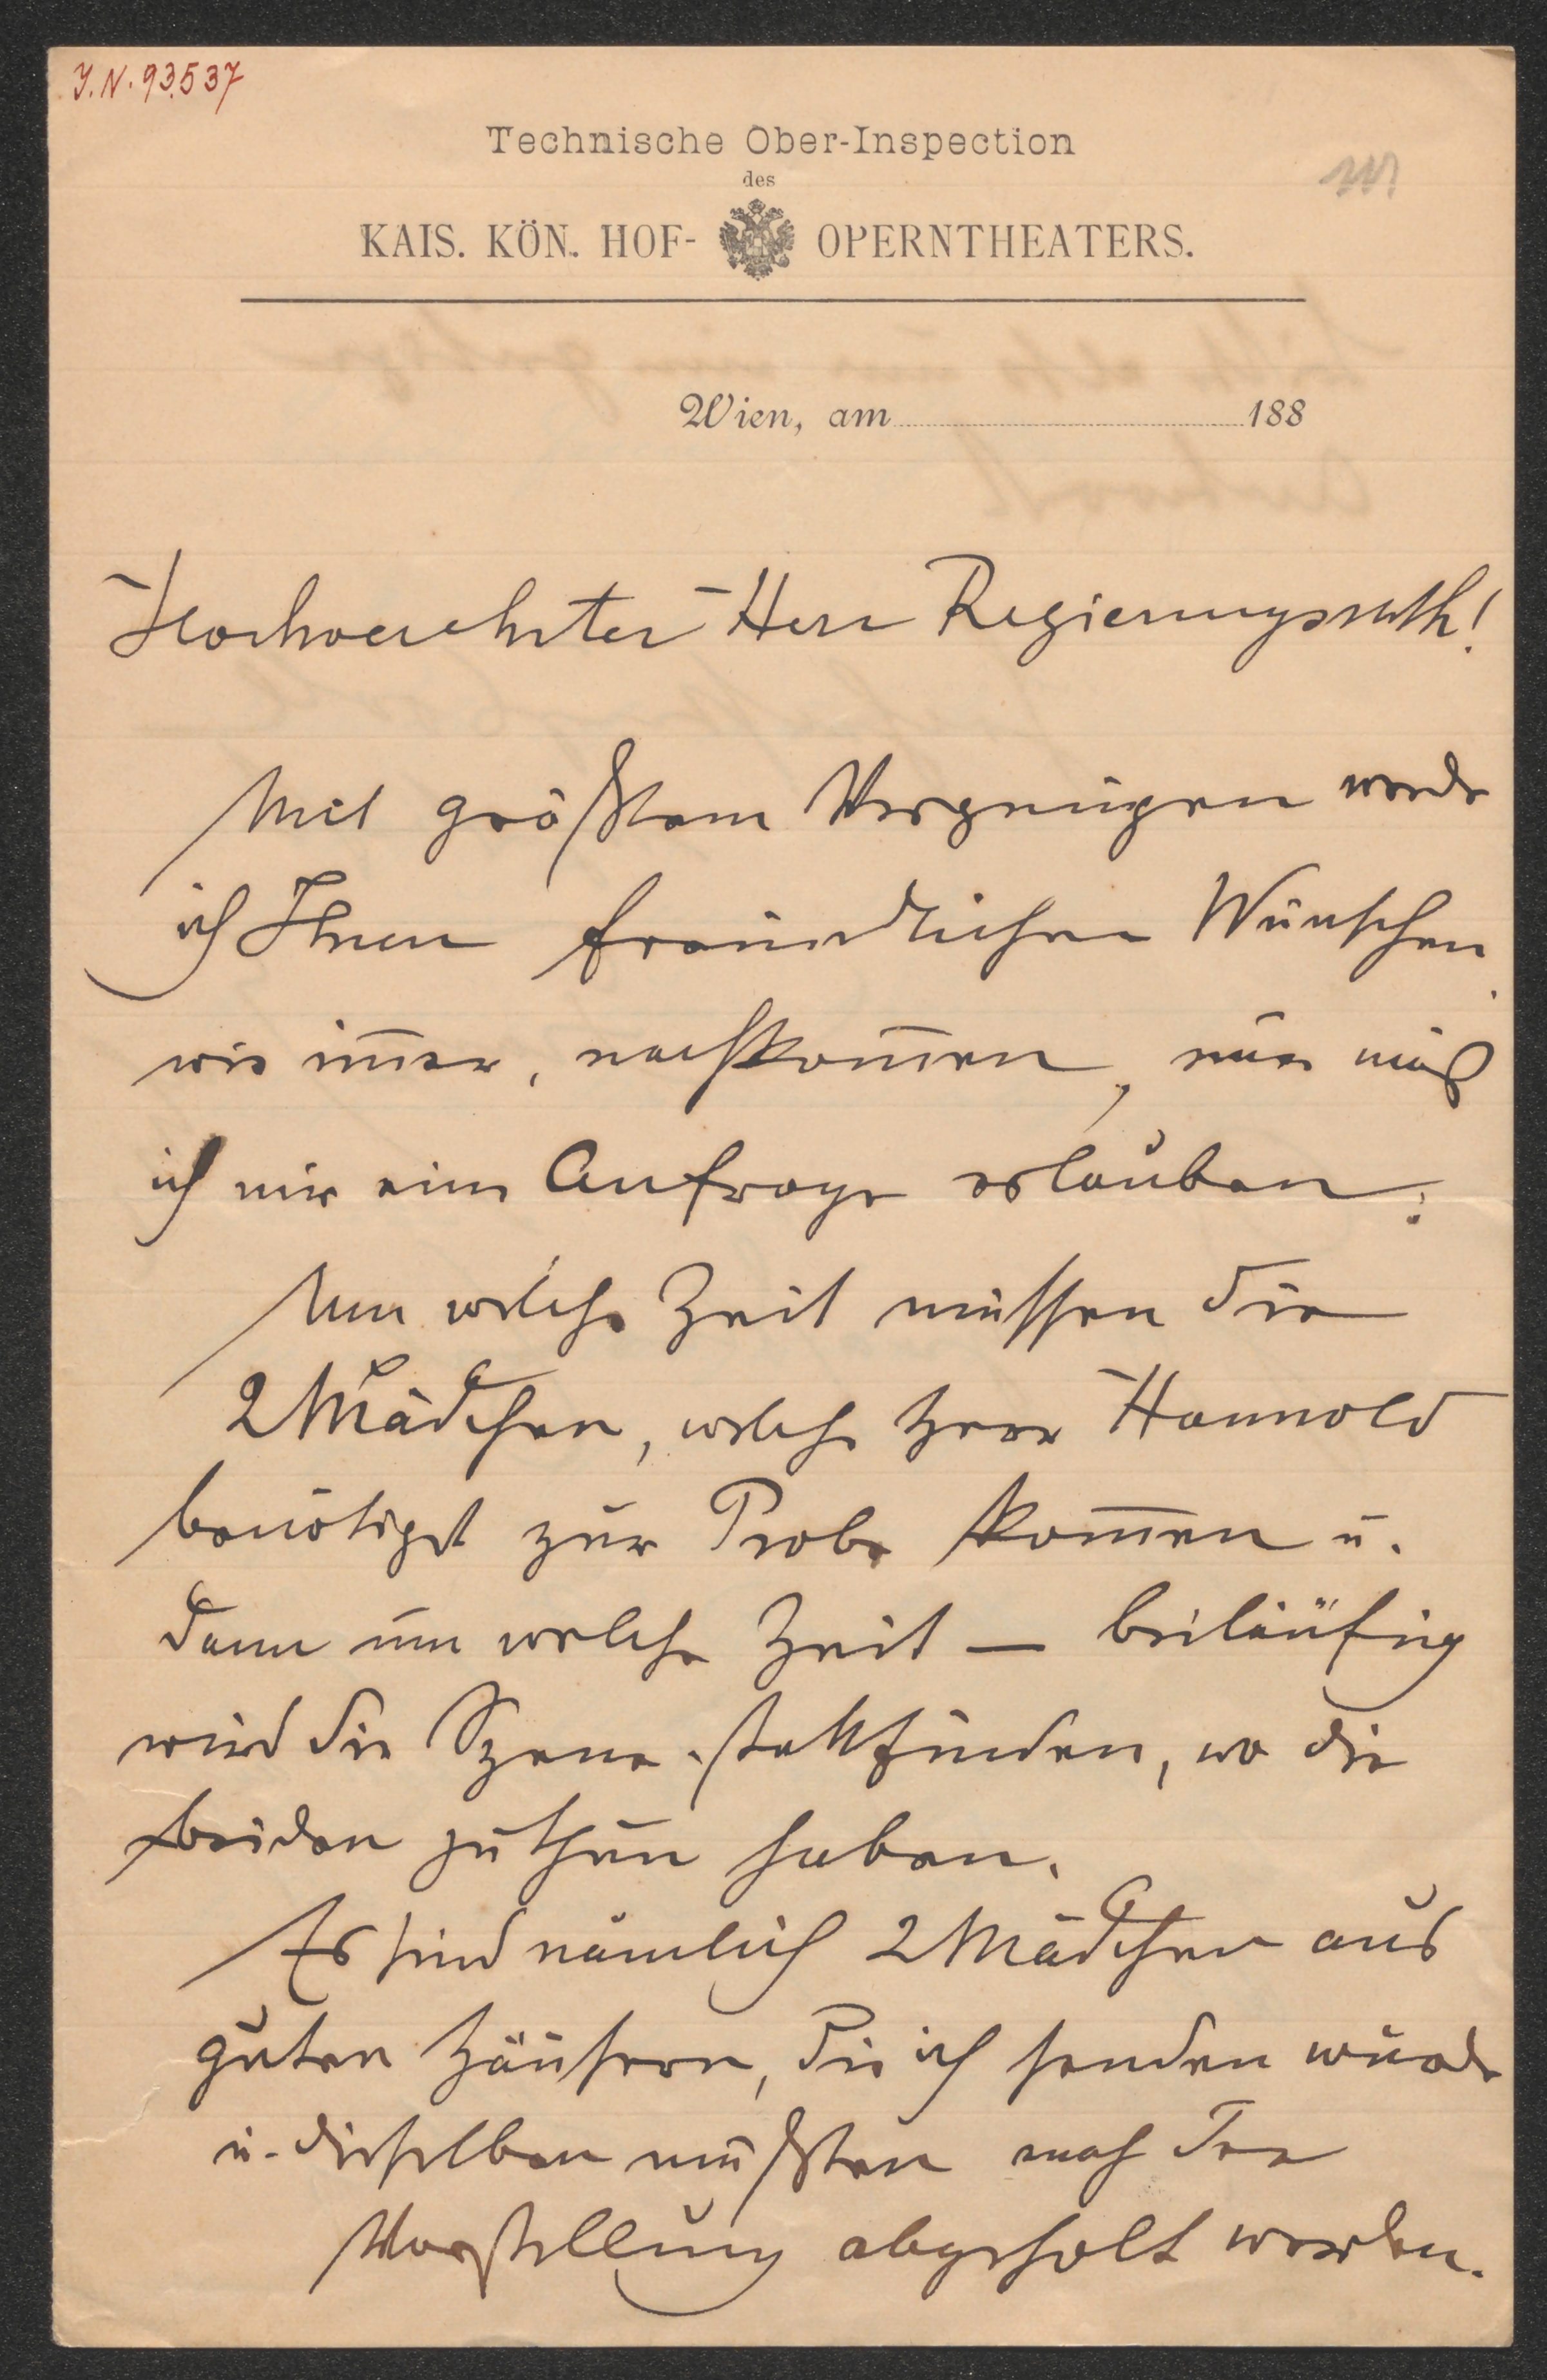 J.N. 93.537
Technische Ober-Inspection
des
KAIS. KÖN. HOF- OPERNTHEATERS.
Wien, am 188
Hochverehrter Herr Regierungsrath!
Mit größtem Vergnügen werde
ich Ihren freundlichen Wünschen
wie im̄er, nachkom̄en, nur muß
ich mir eine Anfrage erlauben:
Um welche Zeit müssen die
2 Mädchen, welche Herr
benötigt zur Probe kom̄en u.
dann um welche Zeit — beiläufig
wird die Szene stattfinden, wo die
beiden zuthun haben.
Es sind nämlich 2 Mädchen aus
guten Häusern, die ich senden würde
u. dieselben müßten nach der
Vorstellung abgeholt werden.